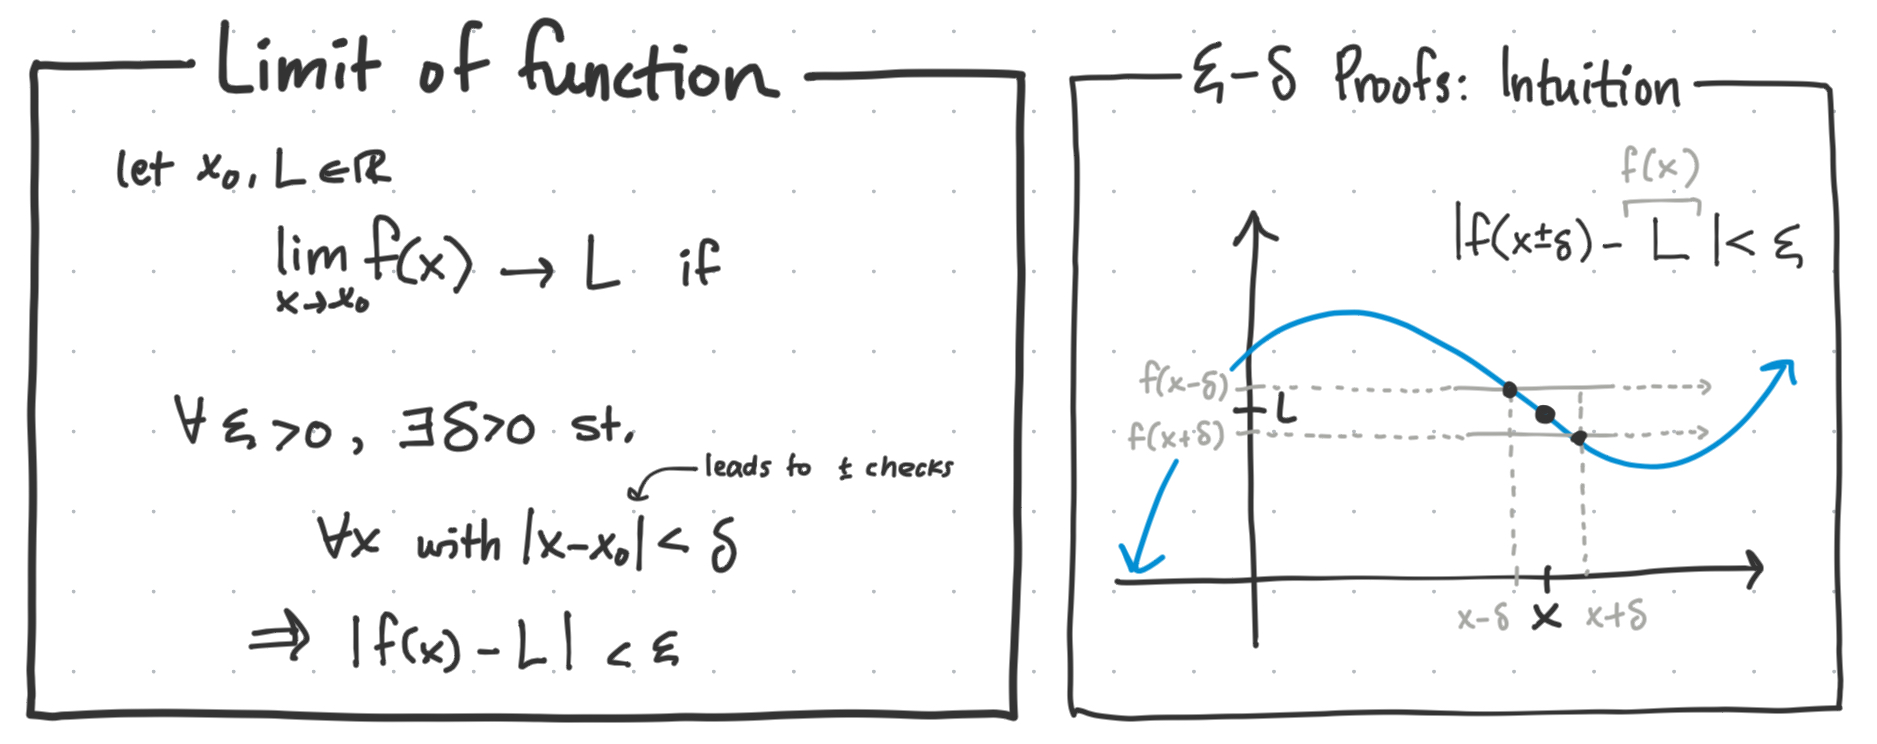 Limit of function
let x₀, L ∈ ℝ
lim f(x) → L if
x→x₀
∀ ε >0, ∃δ>0 st.
leads to ± checks
∀x with |x-x₀| < δ
⇒ |f(x) - L| < ε
ε-δ Proofs: Intuition
f(x)
|f(x±δ) - L| < ε
f(x-δ)
L
f(x+δ)
x-δ x x+δ